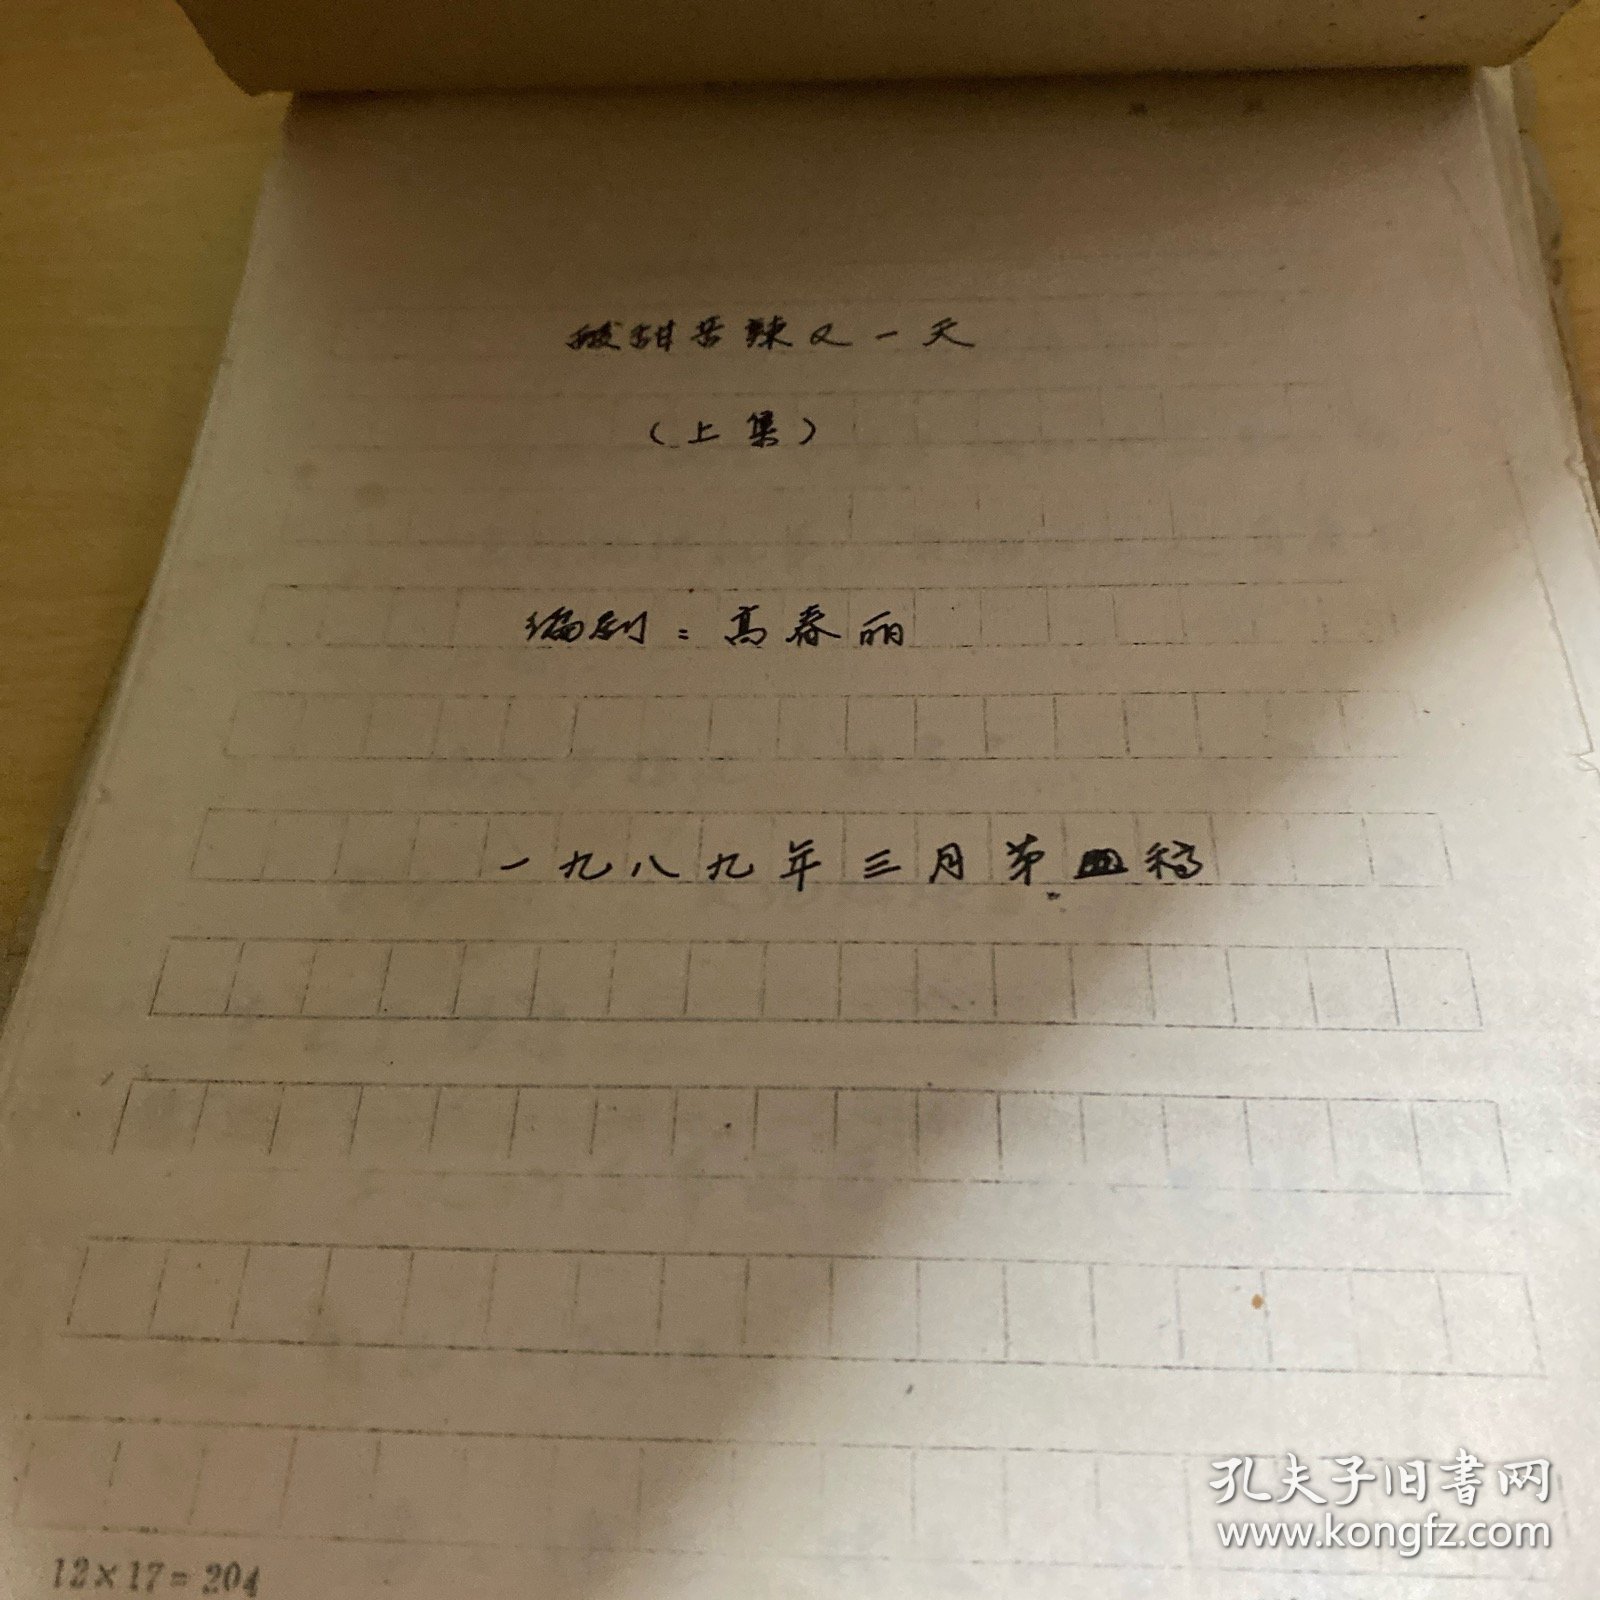 酸甜苦辣又一天
（上集）
编剧：高春丽
一九八九年三月第四稿
12×17=204
孔夫子旧书网
www.kongfz.com